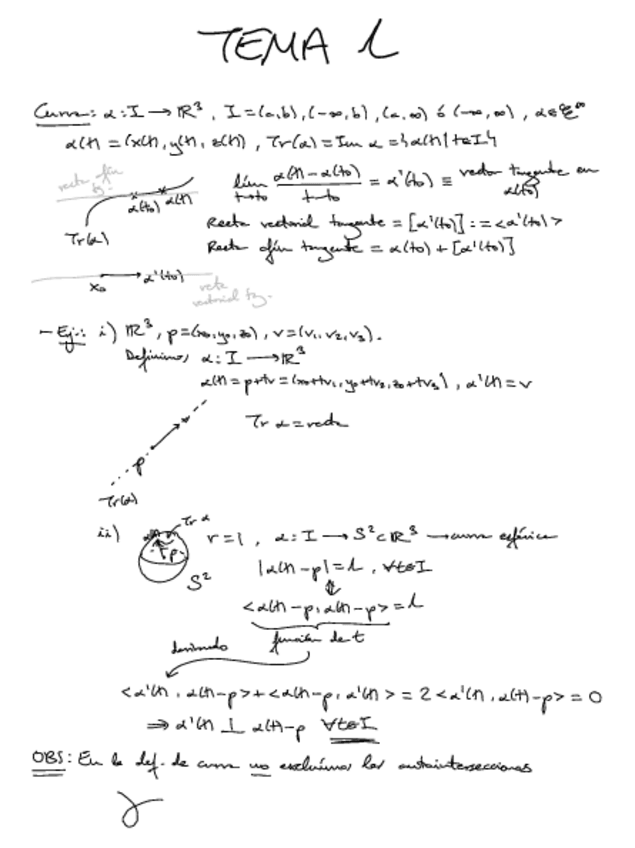 TEMA 1
Curva: α: I → ℝ³, I = (a,b), (-∞,b), (a,∞) ó (-∞,∞), α ∈ C^∞
α(t) = (x(t), y(t), z(t)), Tr(α) = Im α = {α(t) | t ∈ I}
recta afín tg.
α(t₀) α(t)
Tr(α)
lím_{t→t₀} (α(t) - α(t₀))/(t - t₀) = α'(t₀) ≡ vector tangente en α(t₀)
Recta vectorial tangente = [α'(t₀)] := <α'(t₀)>
Recta afín tangente = α(t₀) + [α'(t₀)]
x₀ α'(t₀)
recta vectorial tg.
- Ej.: i) ℝ³, p = (x₀, y₀, z₀), v = (v₁, v₂, v₃).
Definimos α: I → ℝ³
α(t) = p + tv = (x₀ + tv₁, y₀ + tv₂, z₀ + tv₃), α'(t) = v
Tr α = recta
p
Tr(α)
ii) Tr α
r = 1, α: I → S² ⊂ ℝ³ → curva esférica
p
S²
|α(t) - p| = 1, ∀t ∈ I
⇕
<α(t) - p, α(t) - p> = 1
función de t
derivando
<α'(t), α(t) - p> + <α(t) - p, α'(t)> = 2<α'(t), α(t) - p> = 0
⇒ α'(t) ⊥ α(t) - p ∀t ∈ I
OBS: En la def. de curva no excluimos las autointersecciones